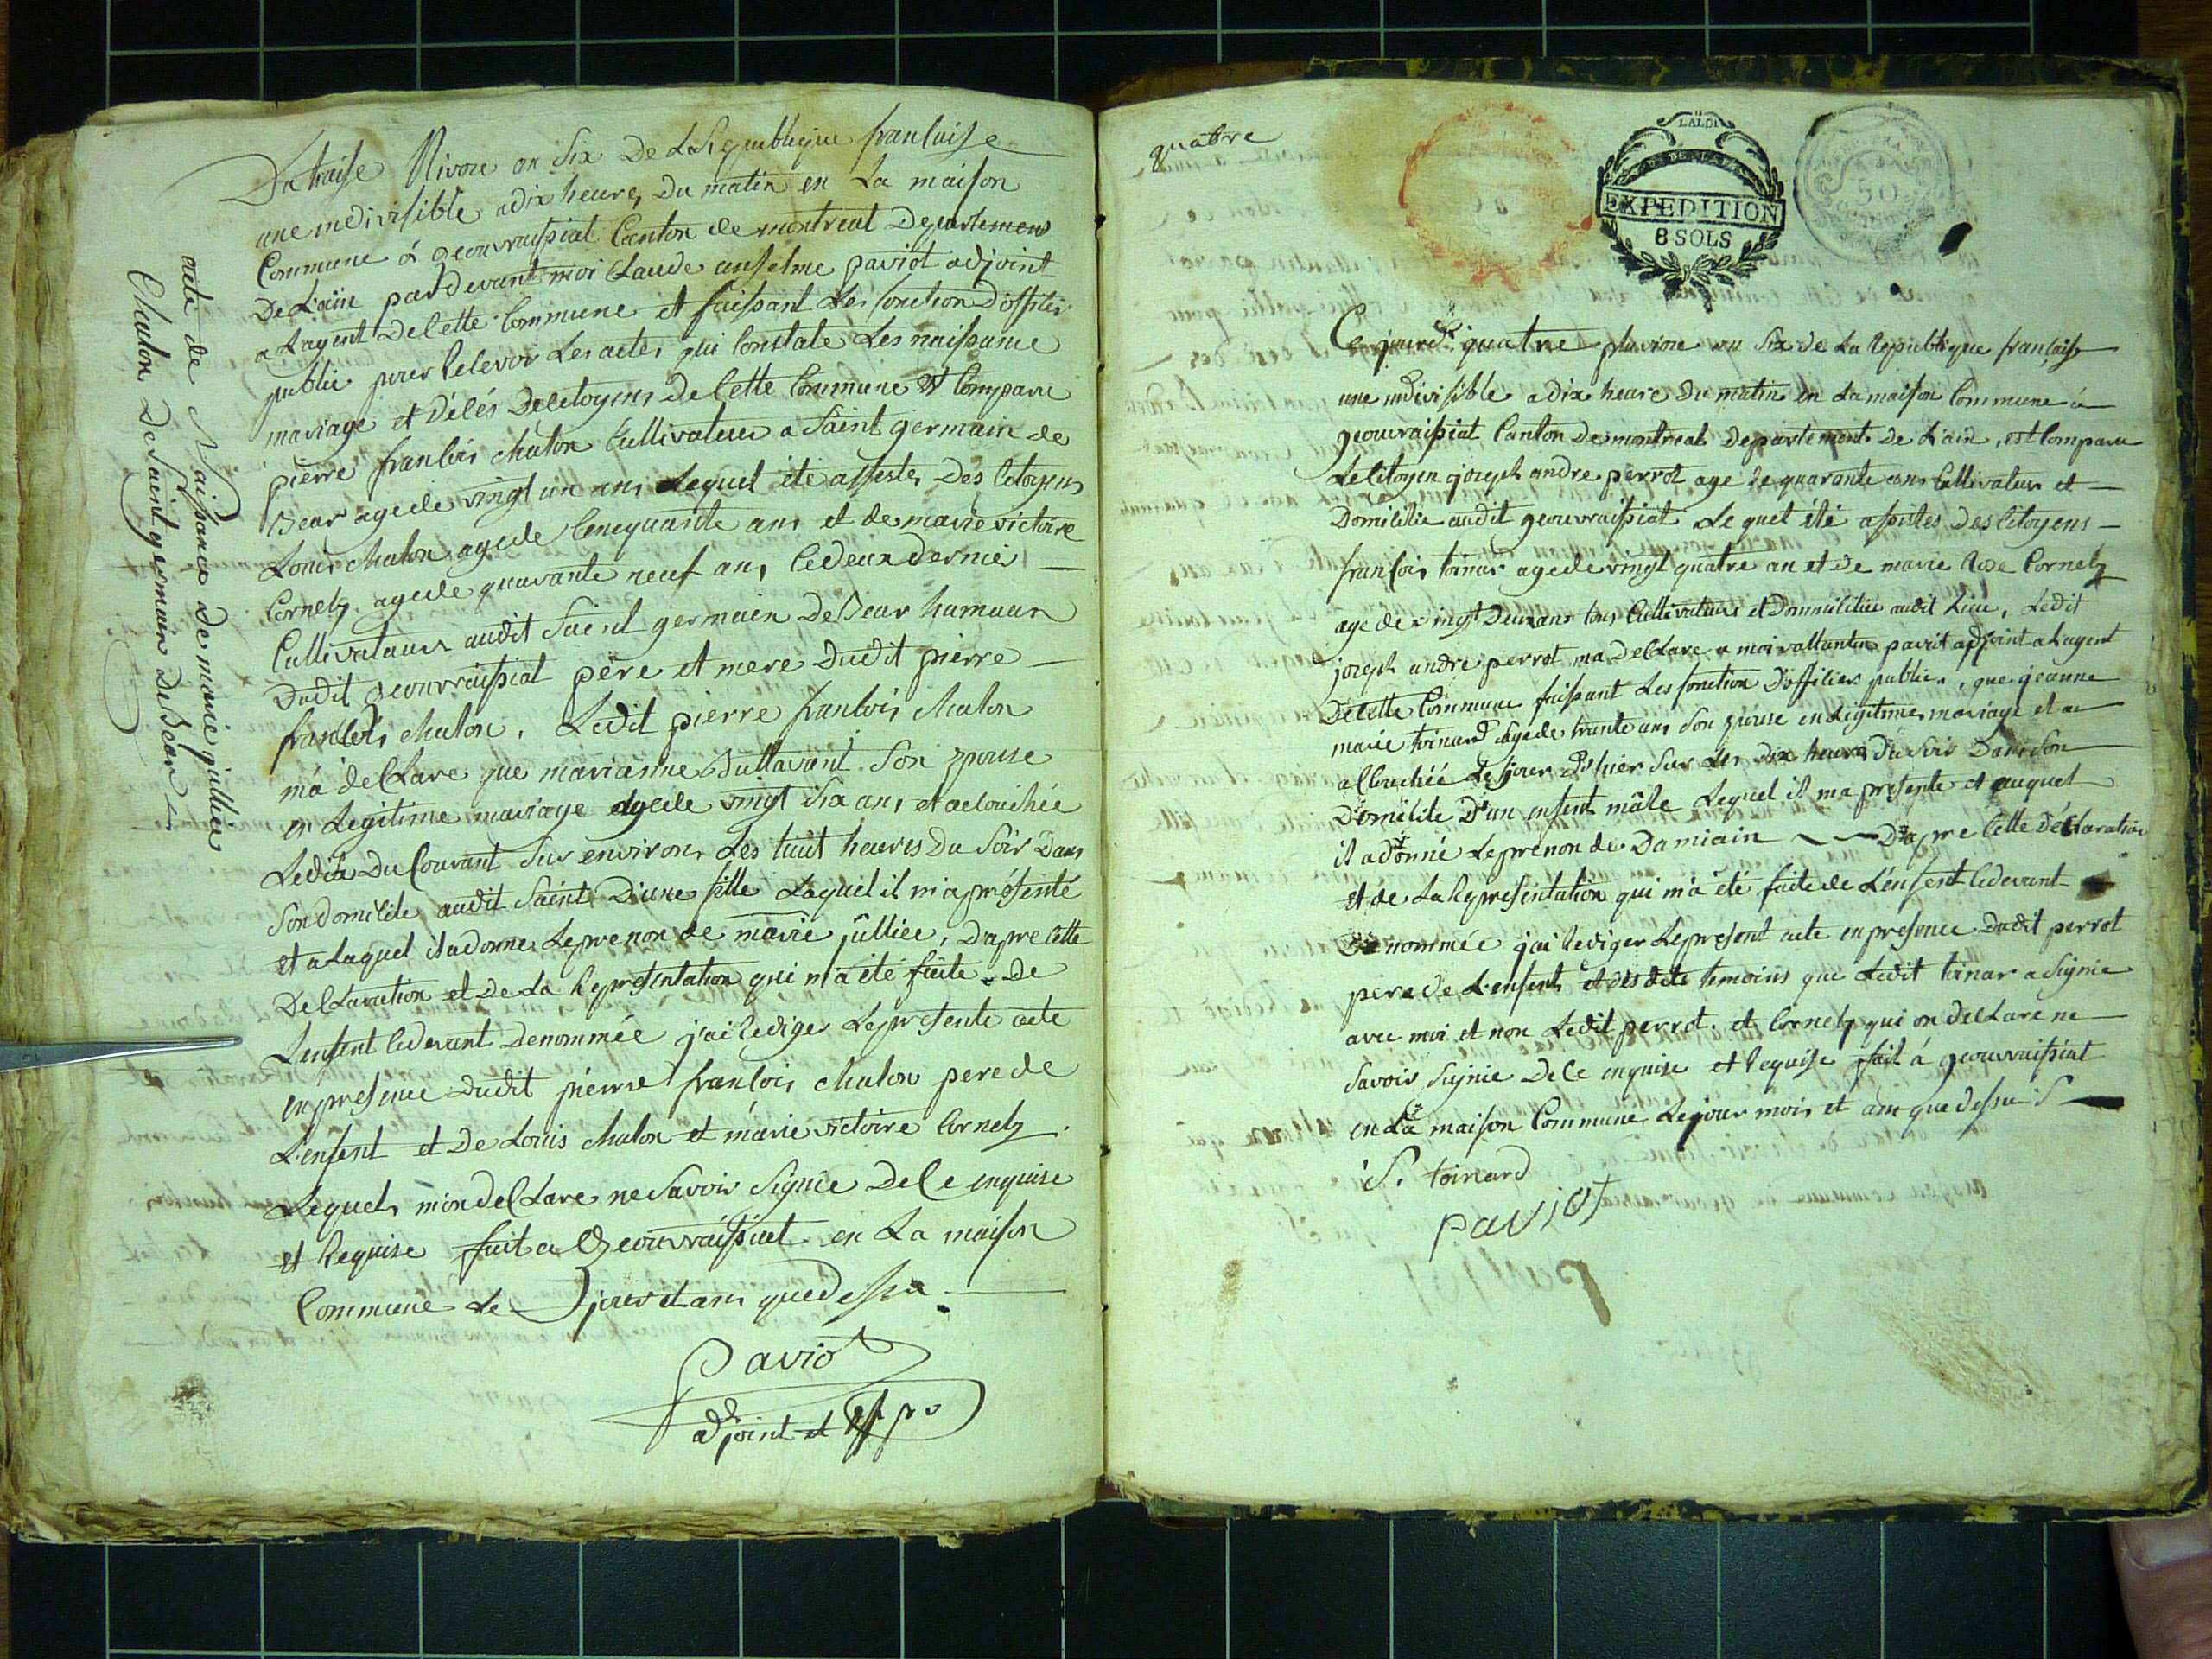 acte de Naissance de marie jullien
Chalon de saint germain de Bear
Du traise Nivose an Six De La Republique francaise
une indivisible a dix heures Du matin en La maison
Commune á geouvraissiat Canton de montreal Departement
De L'ain par Devant moi Claude anselme paviot adjoint
a Lagent De Cette Commune et faissant Les fonction D'offisier
public pour Recevoir Les actes qui Constate Les naissance
mariage et décés De Citoyens De Cette Commune Est Comparu
pierre francois chalon Cultivateur a Saint germain de
Bear agé de vingt un ans Lequel été assistes Des Citoyens
Louis chalon agé de Cenquante ans et de marie victoire
Cornely agé de quarante neuf ans, Ce deux dernier
Cultivateurs audit Saint germain De Bear hamaux
Dudit geouvraissiat père et mere Dudit pierre
francois chalon. Ledit pierre francois chalon
má declare que marianne Duttavant Son epouse
en Legitime mariage agé de vingt Six ans et acouchée
Le dix Du Courant Sur environ Les huit heures Du Soir Dans
Son domicile audit Saint D'une fille Laquel il m'a présenté
et a Laquel il a donné Le prenon de marie jullien, D'apre Cette
Declaration et De La Representation qui m'a été faite De
L'enfent Cidevant Denommée j'ai Rediger Le presente acte
en presence Dudit pierre francois chalon pere de
L'enfent et De Louis chalon et marie victoire Cornely
Lequels m'on declare ne Savoir Signée De Ce enquise
et Requise fait a Geouvraissiat en La maison
Commune Le jour et ans que Dessu
Paviot
adjoint et
quatre
LA LOI
EXPEDITION
8 SOLS
50
Ce jourd'ui quatre pluviose an Six de La Republique française
une indivisible a dix heure Du matin en La maison Commune á
geouvraissiat Canton De montreal Departement De L'ain, est Comparu
Le Citoyen joseph andre perrot age de quarante ans Cultivateur et
Domicilie audit geouvraissiat Lequel été assistes Des Citoyens
francois toinar agé de vingt quatre an et De marie Rose Cornely
age de vingt Deux ans tous Cultivateurs et Dommicilié audit Lieu, Ledit
joseph andre perrot ma DeClare a moi vallantin paviot adjoint a Lagent
De Cette Commune faissant Les fonction D'officiers public, que jeanne
marie toinard agé de trante ans Son epouse en Legitime mariage et a
allouchée Le jour D'hier Sur Les Dix heures du Soir Dans Son
Domicile D'un enfent mâle Lequel il ma presente et auquel
il a donné Le prenon de Damiain D'apre Cette Déclaration
et de La Representation qui m'a été faite de L'enfent Cidevant
Denommée j'ai Rediger Le present acte en presence Dudit perrot
pere de L'enfent et des dits temoins que Ledit toinar a Signie
avec moi et non Ledit perrot et Cornely qui on declare ne
Savoir Signie De Ce enquise et Requise fait á geouvraissiat
en La maison Commune Le jour mois et an que dessu S
S. toinard
paviot